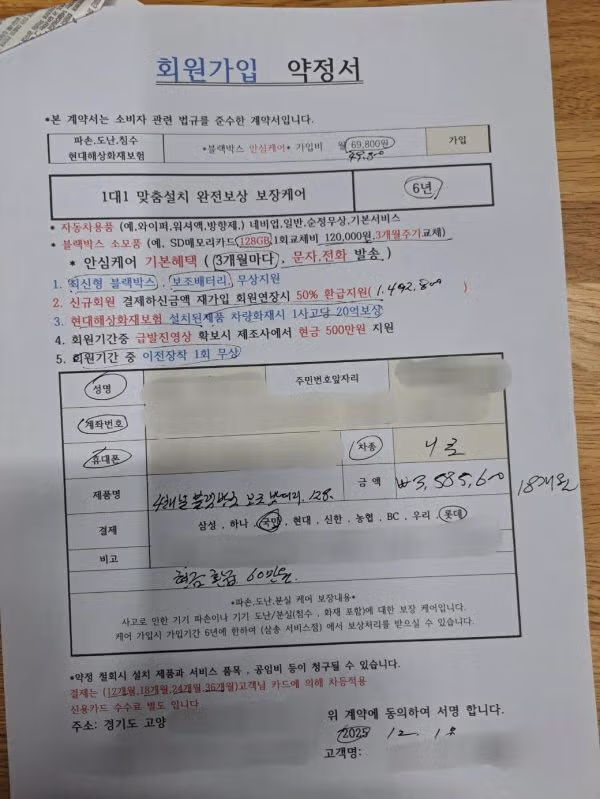 회원가입 약정서
*본 계약서는 소비자 관련 법규를 준수한 계약서입니다.
파손,도난,침수
현대해상화재보험
*블랙박스 안심케어* 가입비 월 69,800원
가입
49,800
1대1 맞춤설치 완전보상 보장케어
6년
* 자동차용품 (예,와이퍼,워셔액,방향제,) 네비업,일반,순정무상,기본서비스
* 블랙박스 소모품 (예, SD메모리카드 128GB,1회교체비 120,000원,3개월주기교체)
* 안심케어 기본혜택 (3개월마다, 문자,전화 발송)
1. 최신형 블랙박스, 보조배터리, 무상지원
2. 신규회원 결제하신금액 재가입 회원연장시 50% 환급지원( 1,492,800 )
3. 현대해상화재보험 설치된제품 차량화재시 1사고당 20억보상
4. 회원기간중 급발진영상 확보시 제조사에서 현금 500만원 지원
5. 회원기간 중 이전장착 1회 무상
성명
주민번호앞자리
계좌번호
휴대폰
차종
니로
제품명
4채널 블랙박스 보조 밧데리, 128.
금 액
₩3,585,600
18개월
결제
삼성 , 하나 , 국민 , 현대 , 신한 , 농협 , BC , 우리 , 롯데
비고
현금 환급 60만원.
*파손,도난,분실 케어 보장내용*
사고로 인한 기기 파손이나 기기 도난/분실(침수 , 화재 포함)에 대한 보장 케어입니다.
케어 가입시 가입기간 6년에 한하여 (삼송 서비스점) 에서 보상처리를 받으실 수 있습니다.
*약정 철회시 설치 제품과 서비스 품목 , 공임비 등이 청구될 수 있습니다.
결제는 (12개월,18개월,24개월,36개월)고객님 카드에 의해 차등적용
신용카드 수수료 별도 입니다
주소: 경기도 고양
위 계약에 동의하여 서명 합니다.
2025 12. 18
고객명: